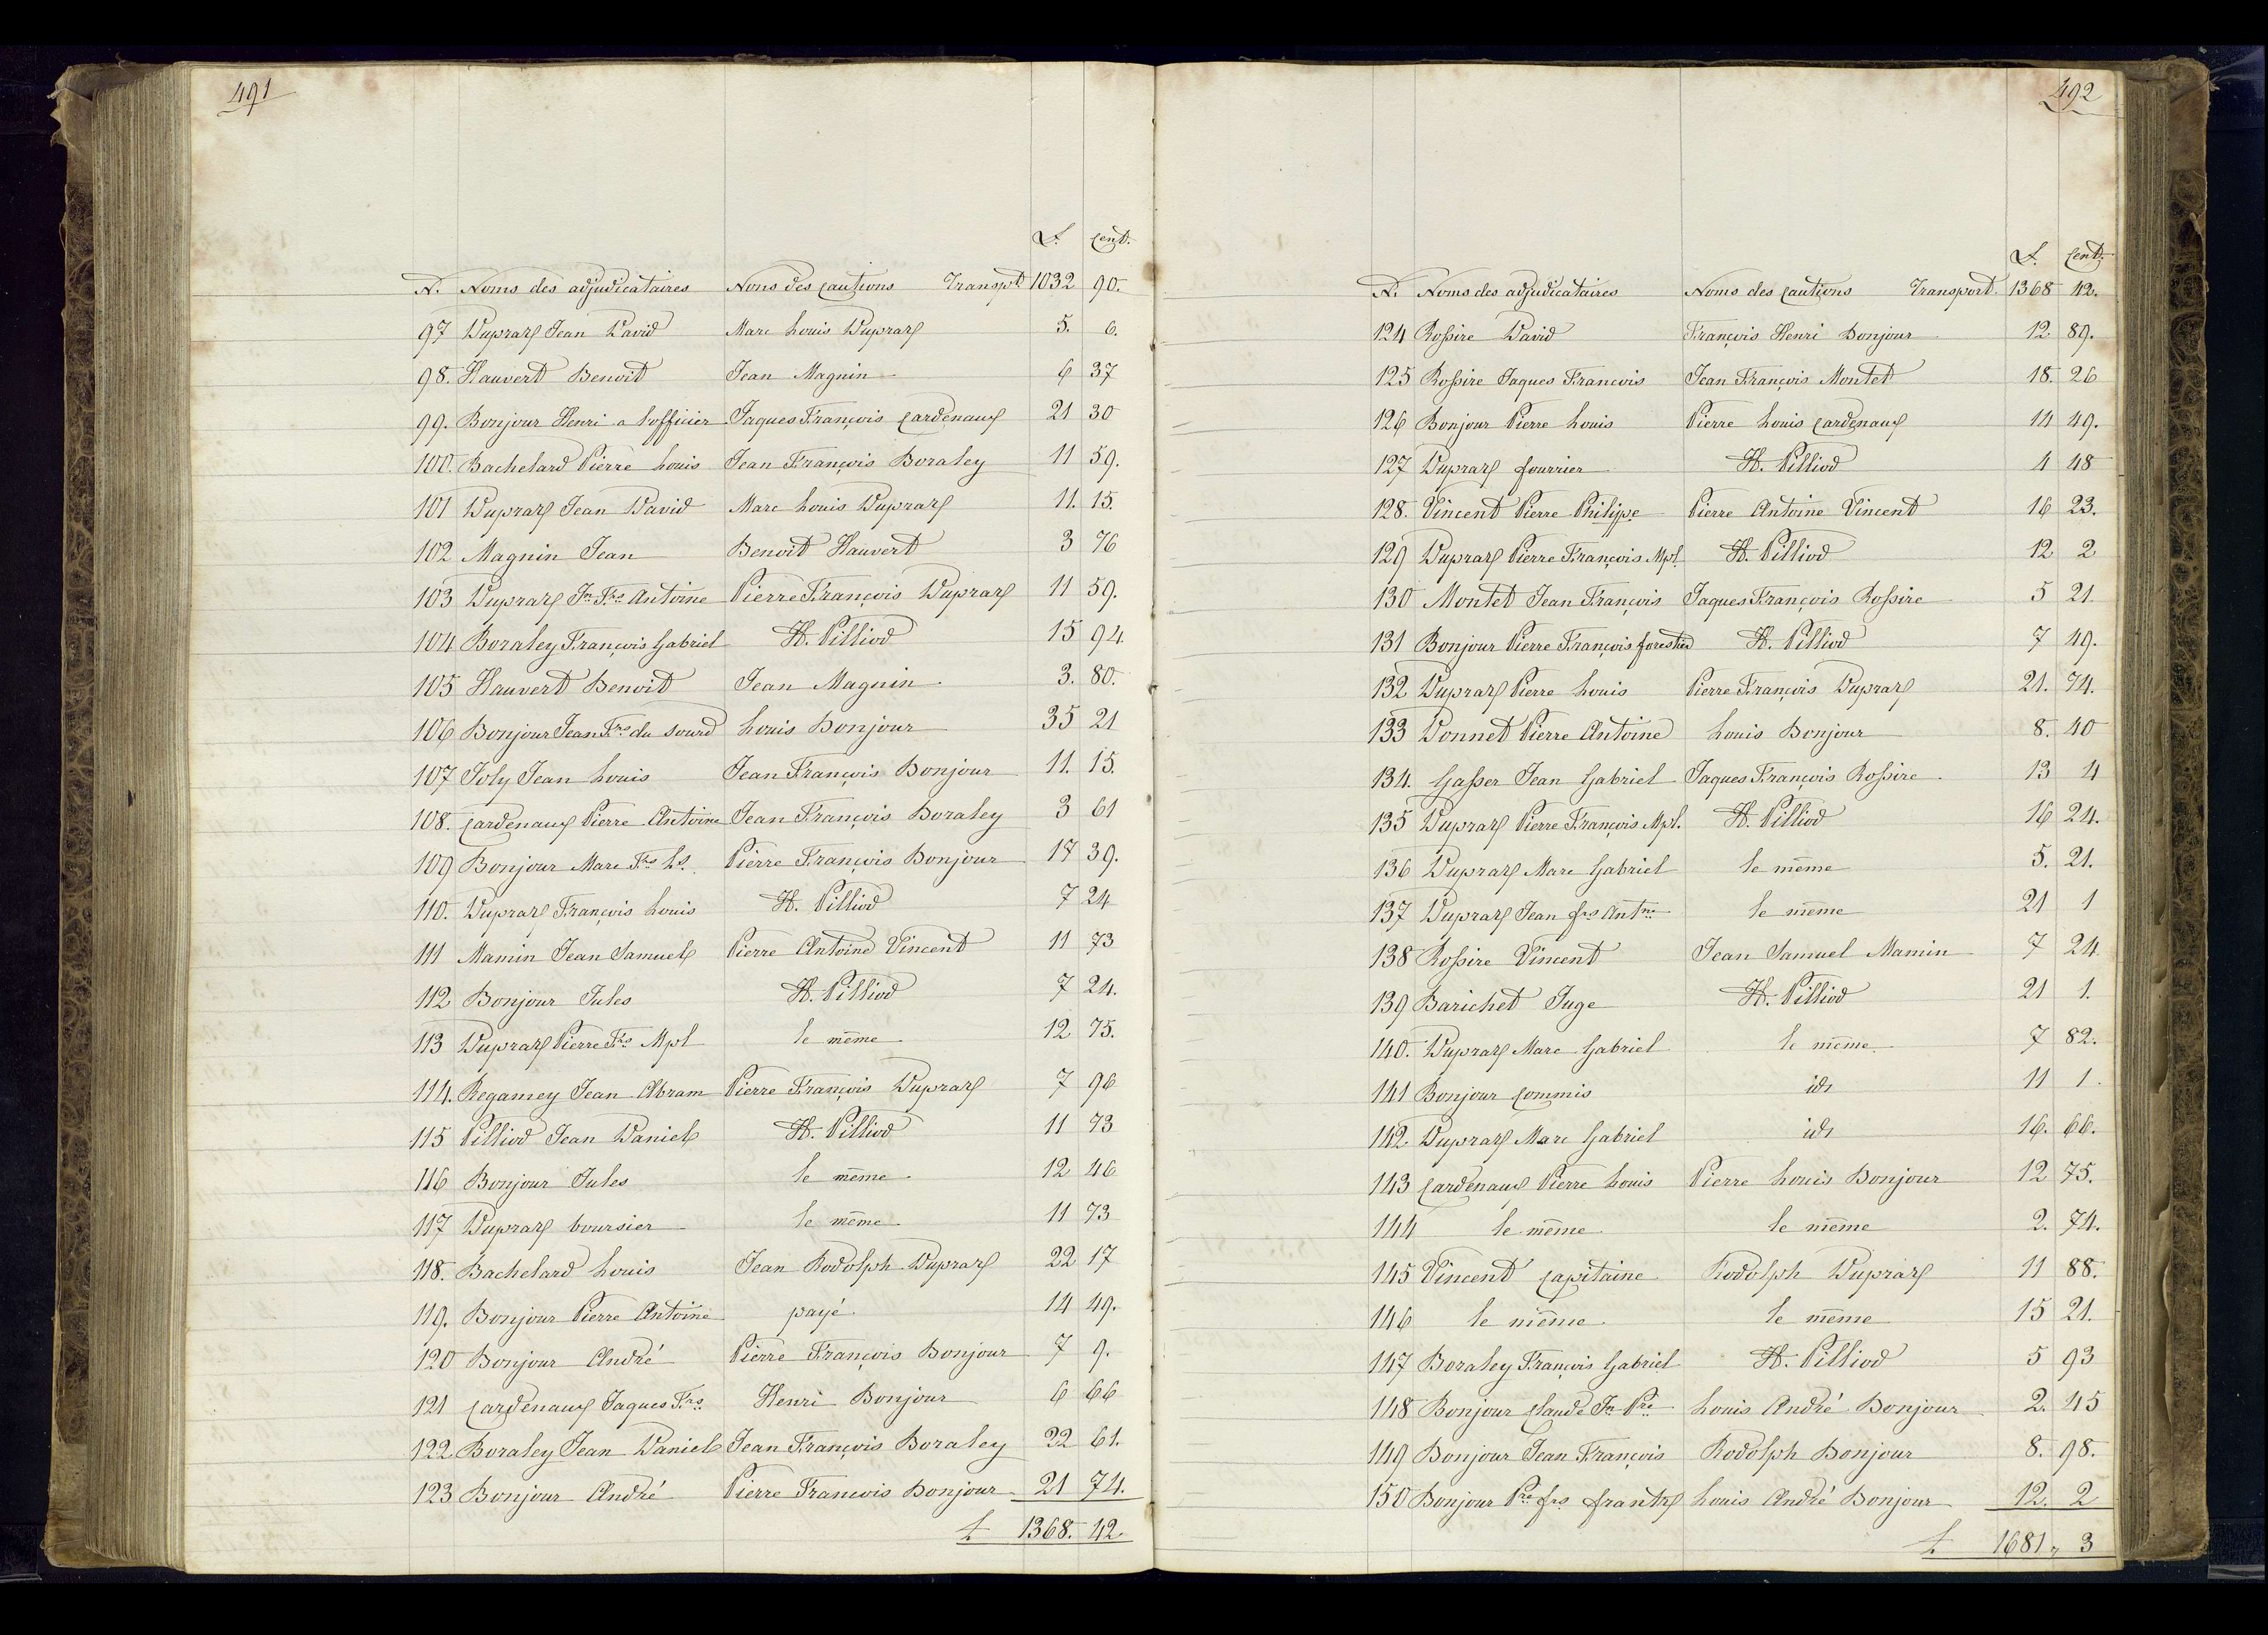 491
f. cent.
N. Noms des adjudicataires Noms des cautions Transpt 1032 90.
97 Dupraz Jean David Marc Louis Dupraz 5. 6.
98. Hauvert Benoit Jean Magnin 6 37
99. Bonjour Henri a l'officier Jaques François Cardenaux 21 30
100. Bachelard Pierre Louis Jean François Boraley 11 59.
101 Dupraz Jean David Marc Louis Dupraz 11. 15.
102 Magnin Jean Benoit Hauvert 3 76
103 Dupraz Jn Frs Antoine Pierre François Dupraz 11 59.
104 Boraley François Gabriel H. Pilliod 15 94
105 Hauvert Benoit Jean Magnin 3. 80.
106 Bonjour Jean Frs du sourd Louis Bonjour 35 21
107 Joly Jean Louis Jean François Bonjour 11. 15.
108. Cardenaux Pierre Antoine Jean François Boraley 3 61
109 Bonjour Marc Frs Ls. Pierre François Bonjour 17 39.
110. Dupraz François Louis H. Pilliod 7 24
111 Mamin Jean Samuel Pierre Antoine Vincent 11 73
112 Bonjour Jules H. Pilliod 7 24.
113 Dupraz Pierre Frs Mpl le même 12 75.
114. Regamey Jean Abram Pierre François Dupraz 7 96
115 Pilliod Jean Daniel H. Pilliod 11 73
116 Bonjour Jules le même 12 46
117 Dupraz boursier le même 11 73
118. Bachelard Louis Jean Rodolph Dupraz 22 17
119. Bonjour Pierre Antoine payé 14 49.
120 Bonjour André Pierre François Bonjour 7 9.
121 Cardenaux Jaques Frs Henri Bonjour 6 66
122 Boraley Jean Daniel Jean François Boraley 22 61.
123 Bonjour André Pierre Francois Bonjour 21 74.
f 1368. 42
492
f. cent.
N. Noms des adjudicataires Noms des cautions Transport. 1368 42.
124 Rossire David François Henri Bonjour 12 89.
125 Rossire Jaques Francois Jean François Montet 18. 26
126 Bonjour Pierre Louis Pierre Louis Cardenaux 14 49.
127 Dupraz fourrier H. Pilliod 4 48
128. Vincent Pierre Philipe Pierre Antoine Vincent 16 23.
129 Dupraz Pierre François Mpl. H. Pilliod 12 2
130 Montet Jean François Jaques François Rossire 5 21
131 Bonjour Pierre François forestier H. Pilliod 7 49.
132 Dupraz Pierre Louis Pierre François Dupraz 21. 74.
133 Donnet Pierre Antoine Louis Bonjour 8. 40
134. Gasser Jean Gabriel Jaques François Rossire 13 4
135 Dupraz Pierre François Mpl. H. Pilliod 16 24.
136 Dupraz Marc Gabriel le même 5. 21.
137 Dupraz Jean frs Antne le même 21 1
138 Rossire Vincent Jean Samuel Mamin 7 24
139 Barichet Juge H. Pilliod 21 1.
140. Dupraz Marc Gabriel le même 7 82.
141 Bonjour Commis id 11 1.
142. Dupraz Marc Gabriel id 16. 66.
143 Cardenaux Pierre Louis Pierre Louis Bonjour 12 75.
144 le même le même 2. 74.
145 Vincent Capitaine Rodolph Dupraz 11 88.
146 le même le même 15 21.
147 Boraley François Gabriel H. Pilliod 5 93
148 Bonjour Claude Jn Pre Louis André Bonjour 2. 45
149 Bonjour Jean François Rodolph Bonjour 8. 98.
150 Bonjour Pre frs frantz Louis André Bonjour 12. 2
f 1681, 3